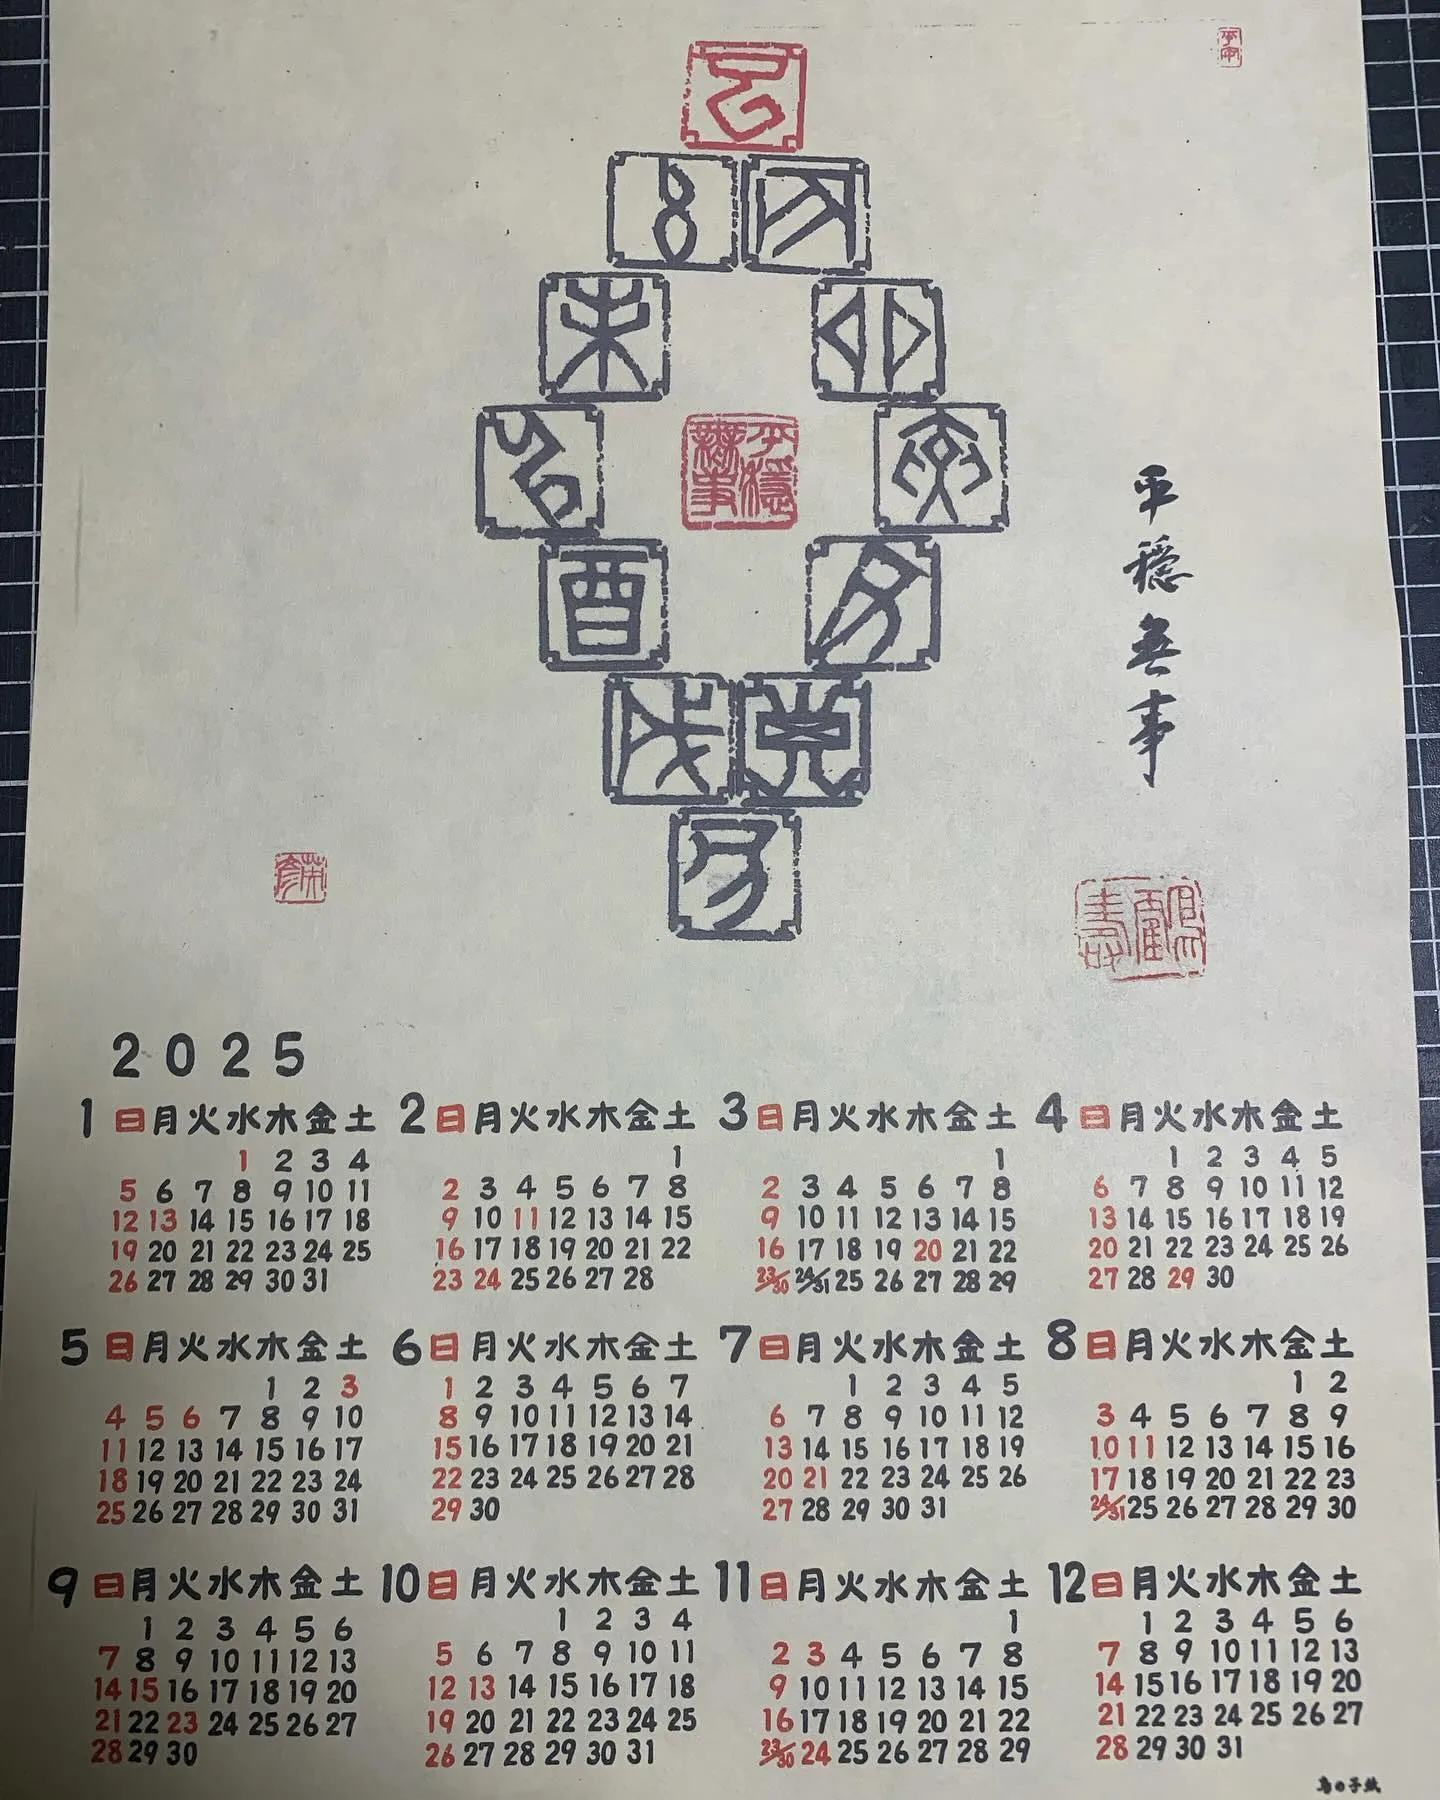 巳
午 辰
未 卯
申 寅
平穩
無事
酉 丑
戌 子
亥
平穏無事
2025
1 日月火水木金土
1 2 3 4
5 6 7 8 9 10 11
12 13 14 15 16 17 18
19 20 21 22 23 24 25
26 27 28 29 30 31
2 日月火水木金土
1
2 3 4 5 6 7 8
9 10 11 12 13 14 15
16 17 18 19 20 21 22
23 24 25 26 27 28
3 日月火水木金土
1
2 3 4 5 6 7 8
9 10 11 12 13 14 15
16 17 18 19 20 21 22
23/30 24/31 25 26 27 28 29
4 日月火水木金土
1 2 3 4 5
6 7 8 9 10 11 12
13 14 15 16 17 18 19
20 21 22 23 24 25 26
27 28 29 30
5 日月火水木金土
1 2 3
4 5 6 7 8 9 10
11 12 13 14 15 16 17
18 19 20 21 22 23 24
25 26 27 28 29 30 31
6 日月火水木金土
1 2 3 4 5 6 7
8 9 10 11 12 13 14
15 16 17 18 19 20 21
22 23 24 25 26 27 28
29 30
7 日月火水木金土
1 2 3 4 5
6 7 8 9 10 11 12
13 14 15 16 17 18 19
20 21 22 23 24 25 26
27 28 29 30 31
8 日月火水木金土
1 2
3 4 5 6 7 8 9
10 11 12 13 14 15 16
17 18 19 20 21 22 23
24/31 25 26 27 28 29 30
9 日月火水木金土
1 2 3 4 5 6
7 8 9 10 11 12 13
14 15 16 17 18 19 20
21 22 23 24 25 26 27
28 29 30
10 日月火水木金土
1 2 3 4
5 6 7 8 9 10 11
12 13 14 15 16 17 18
19 20 21 22 23 24 25
26 27 28 29 30 31
11 日月火水木金土
1
2 3 4 5 6 7 8
9 10 11 12 13 14 15
16 17 18 19 20 21 22
23/30 24 25 26 27 28 29
12 日月火水木金土
1 2 3 4 5 6
7 8 9 10 11 12 13
14 15 16 17 18 19 20
21 22 23 24 25 26 27
28 29 30 31
鳥の子紙